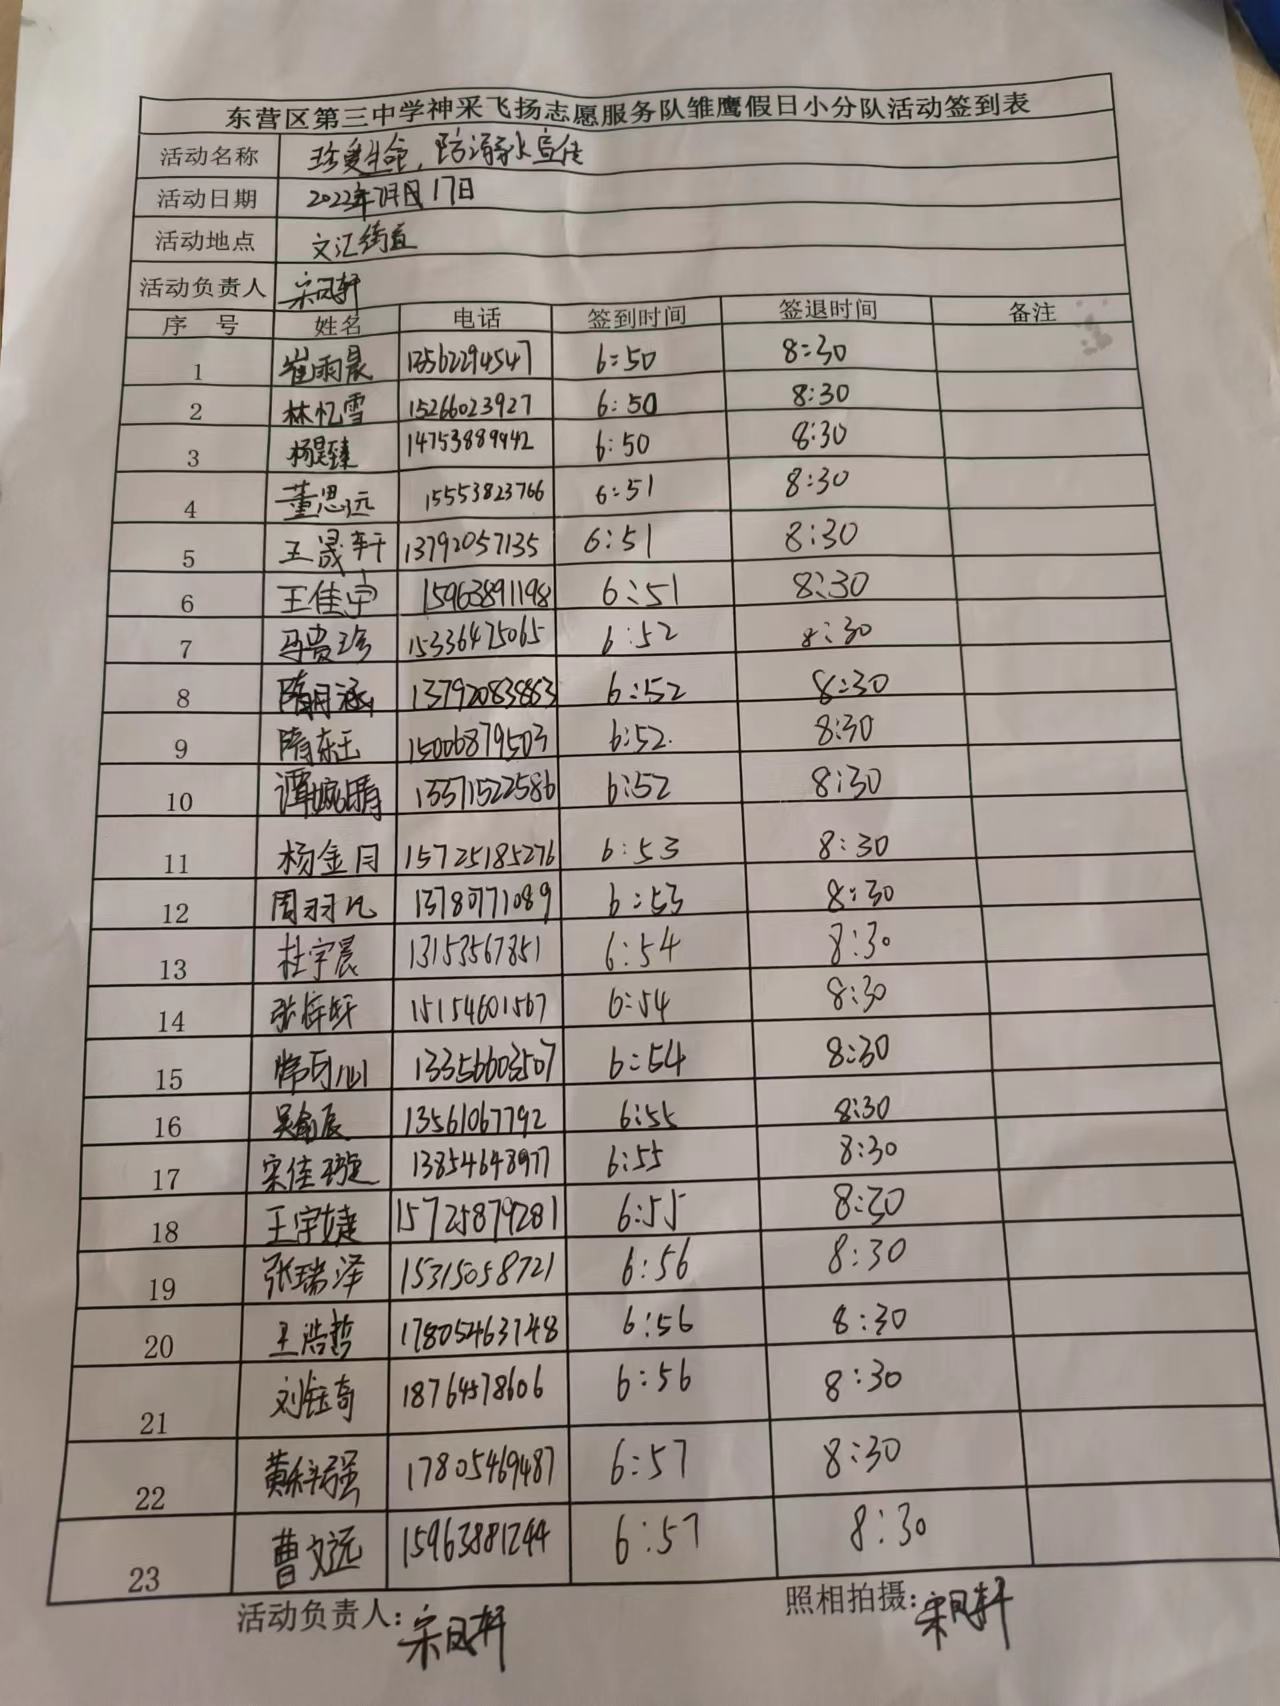 东营区第三中学神采飞扬志愿服务队雏鹰假日小分队活动签到表
活动名称 珍爱生命,防溺水宣传
活动日期 2022年7月17日
活动地点 文汇街道
活动负责人 宋凤轩
序 号 姓名 电话 签到时间 签退时间 备注
1 崔雨晨 13562294547 6:50 8:30
2 林忆雪 15266023927 6:50 8:30
3 14753889942 6:50 8:30
4 董思远 15553823766 6:51 8:30
5 王晟轩 13792057135 6:51 8:30
6 王佳宇 15963891198 6:51 8:30
7 马贵珍 15336475065 6:52 8:30
8 隋月涵 13792083863 6:52 8:30
9 隋东玉 15006879503 6:52 8:30
10 谭婉晴 13371522586 6:52 8:30
11 杨金月 15725185276 6:53 8:30
12 周羽凡 13780771089 6:53 8:30
13 杜宇晨 13153567851 6:54 8:30
14 张梓轩 15154601567 6:54 8:30
15 13356603507 6:54 8:30
16 13561067792 6:55 8:30
17 宋佳璇 13854648977 6:55 8:30
18 王宇婕 15725879281 6:55 8:30
19 张瑞泽 15315058721 6:56 8:30
20 王浩哲 17805463748 6:56 8:30
21 刘钰奇 18764578606 6:56 8:30
22 黄科强 17805469487 6:57 8:30
23 曹文远 15963881244 6:57 8:30
活动负责人:宋凤轩 照相拍摄:宋凤轩